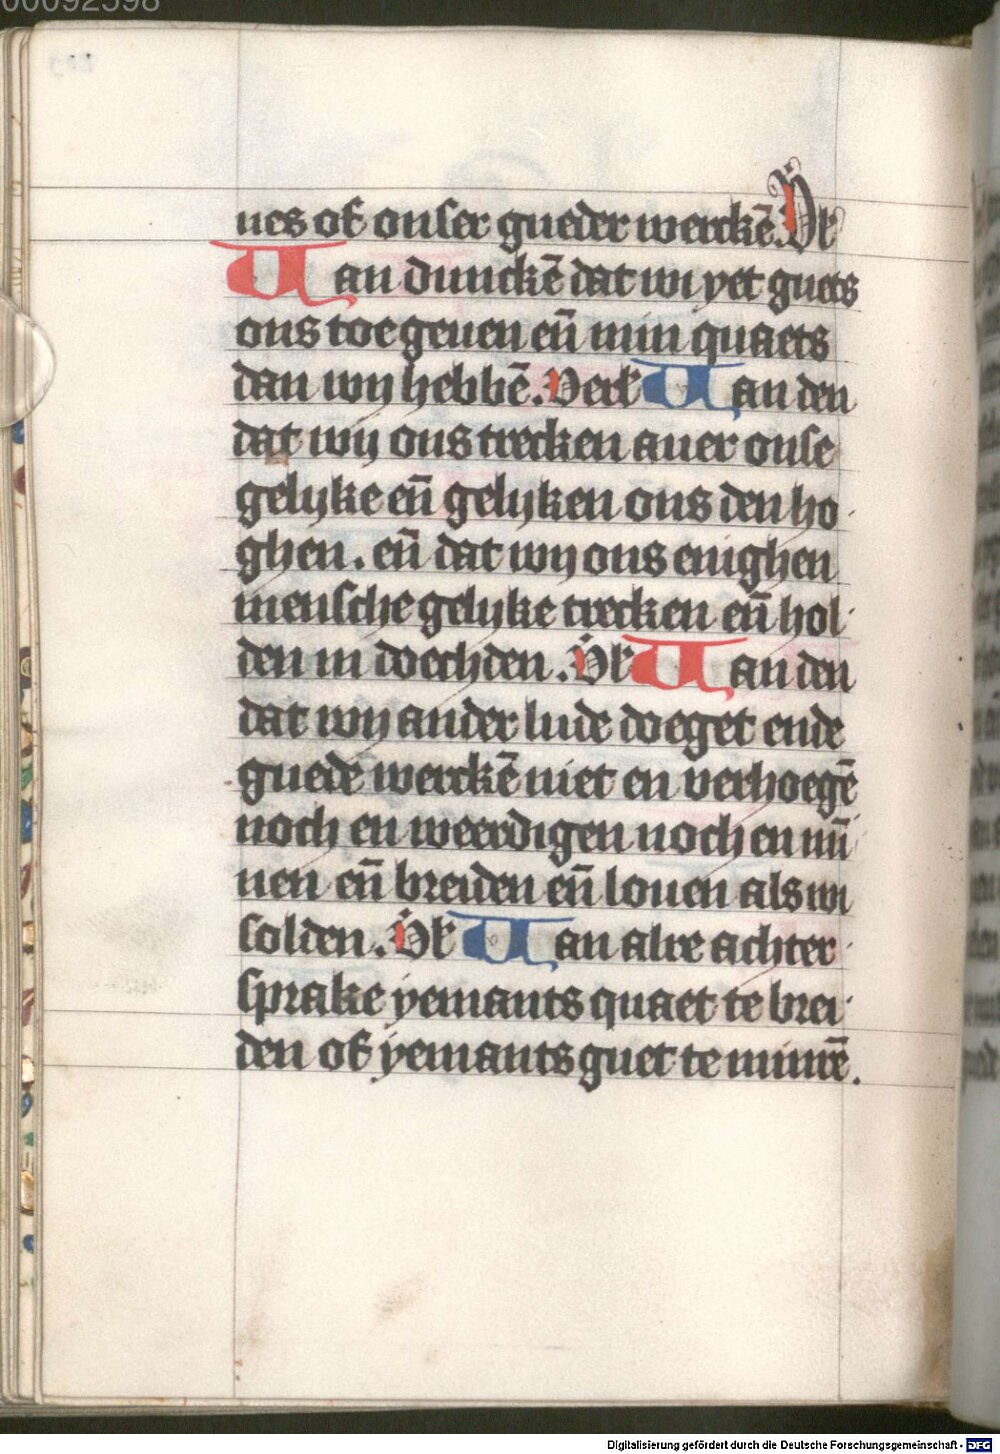 00092598
ues of onser gueder werckē. Vk
Uan dunckē dat wi yet guets
ons toe geuen eñ min quaets
dan wij hebbē. Verk Uan den
dat wij ons trecken auer onse
gelijke eñ gelijken ons den ho
ghen. eñ dat wij ons enighen
mensche gelijke trecken eñ hol
den in doechden. Vk Uan den
dat wij ander lude doeget ende
guede werckē niet en verhoegē
noch en weerdigen noch en mi
nen eñ breiden eñ louen als wi
solden. Vk Uan alre achter
sprake yemants quaet te brei
den of yemants guet te minrē.
Digitalisierung gefördert durch die Deutsche Forschungsgemeinschaft - DFG